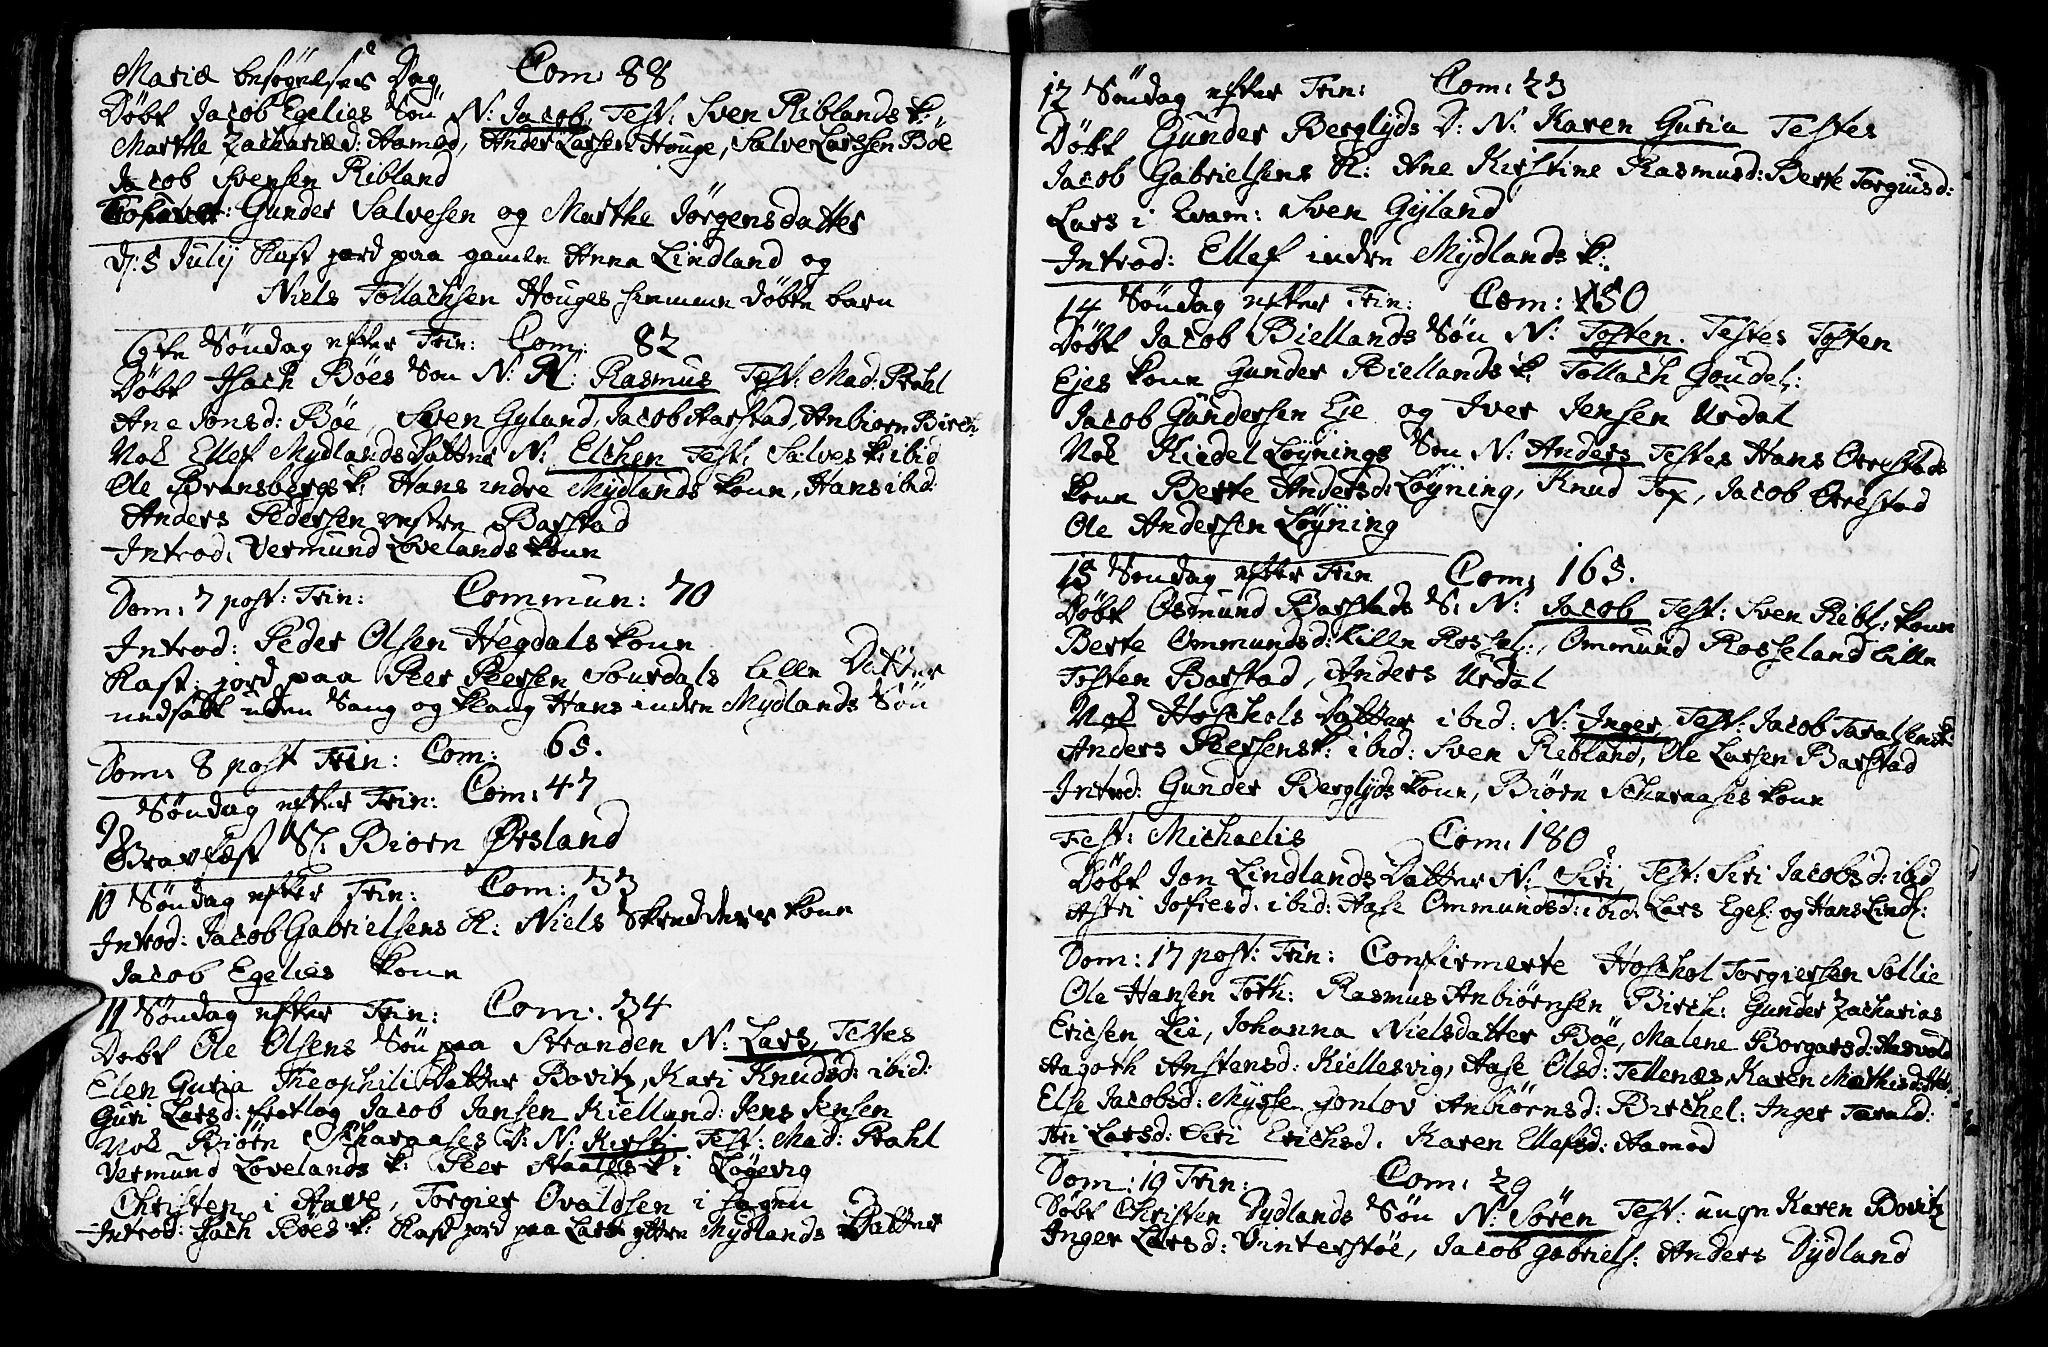 Mariæ besøgelses Dag Com: 88
Døbt Jacob Egelies Søn N: Jacob, Test: Sven Riblands k:
Marthe Zachariæd: Aamod, Ander Larsen Houge, Salve Larssen Böe
Jacob Svensen Ribland
Gunder Salvesen og Marthe Jörgensdatter
D: 5 Julij Kast jord paa gamle Anna Lindland og
Niels Tollachsen Houges hiemme døbte barn
6te Søndag efter Trin: Com: 82
Døbt Isach Böes Søn N: Rasmus Test: Mad: Prahl
Ane Jonsd: Böe, Sven Gyland, Jacob Aarstad, Anbiørn Birch:
Nok Ellef Mydlands datter N: Elchen Test: Salves k: ibid
Ole Bransbergs k: Hans indre Mydlands kone, Hans ibid:
Anders Pedersen vestre Barstad
Introd: Vermund Lovelands kone
Dom: 7 post: Trin: Commun: 70
Introd: Peder Olsen Hegdals kone
Kast: jord paa Peer Peersen Sourdals lille Datter
nedsatt uden Sang og klang Hans indre Mydlands Søn
Dom: 8 post Trin: Com: 65.
9 Søndag efter Trin: Com: 47
Gravfæst Sl: Biørn Ørsland
10 Søndag efter Trin: Com: 33
Introd: Jacob Gabrielsens K: Niels Skredders kone
Jacob Egelies kone
11 Søndag efter Trin: Com: 34
Døbt Ole Olsens Søn paa Stranden N: Lars, Testes
Elen Guria Theophili datter Bovitz, Kari Knudsd: ibid:
Guri Larsd: Jacob Jansen Kielland: Jens Jensen
Nok Biørn Scharaases D: N: Kirsti Test: Mad: Prahl
Vermund Lovelands k: Peer k: i Løgevig
Christen i Aave, Torgier Ovaldsen i
Introd: Isach Böes k: Kast jord paa Lars yttre Mydlands Datter
12 Søndag efter Trin: Com: 23
Døbt Gunder Berglyds D: N: Karen Guria Testes
Jacob Gabrielsens K: Ane Kirstine Rasmusd: Berte Torgiusd:
Lars i Qvam: Sven Gyland
Introd: Ellef indre Mydlands k:
14 Søndag efter Trin: Com: 150
Døbt Jacob Biellands Søn N: Tosten. Testes Tosten
Ejes kone Gunder Biellands k: Tollach Goudel:
Jacob Gundersen Eje og Iver Jensen Urdal
Nok Kiedel Løynings Søn N: Anders Testes Hans Orrestads
kone Berte Andersd: Løyning, Knud Tox, Jacob Orrestad
Ole Andersen Løyning
15 Søndag efter Trin Com: 165.
Døbt Osmund Barstads S: N: Jacob Test: Sven Ribl: kone
Berte Ommundsd: lille Rossel:, Ommund Rosseland lille
Tosten Barstad, Anders Urdal
Nok Hoschols datter ibid: N: Inger, Test: Jacob Taralsens k:
Anders Peersens k: ibid: Sven Ribland, Ole Larsen Barstad
Introd: Gunder Berglyds kone, Biørn Scharaases kone
Fest: Michaelis Com: 180
Døbt Jon Lindlands Datter N: Siri, Test: Siri Jacobsd: ibid
Astri Jofiesd: ibid: Aase Ommundsd: ibid: Lars Egel: og Hans Lindl:
Dom: 17 post: Trin: Confirmerte Hoschol Torgiersen Sollie
Ole Hansen Toth: Rasmus Anbiørnsen Birch: Gunder Zacharias
Ericsen Lie, Johanna Nielsdatter Böe, Malene Borgarsd: Aasvold
Aagoth Anstensd: Kiellesvig, Aase Olsd: Tellenæs, Karen Mathisd:
Else Jacobsd: Mysse Gonlov Anbiørnsd: Birchel: Inger Tarald:
Siri Larsd: Siri Erichsd: Karen Ellefsd: Aamod
Dom: 19 Trin: Com: 29
Døbt Christen Dydlands Søn N: Sören Test: unge Karen Bovitz
Inger Larsd: Vinterstøe, Jacob Gabriels: Anders Dydland